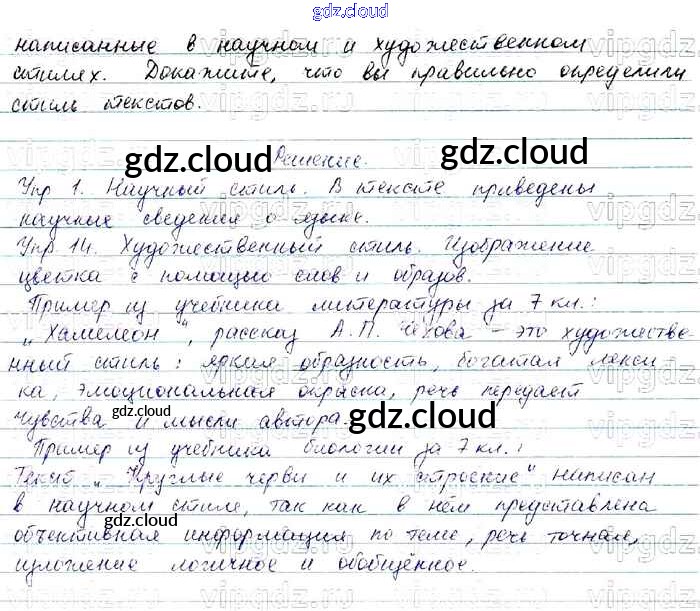 gdz.cloud
написанные в научном и художественном
стилях. Докажите, что вы правильно определили
стиль текстов.
gdz.cloud
Решение.
Упр 1. Научный стиль. В тексте приведены
научные сведения о языке.
Упр 14. Художественный стиль. Изображение
цветка с помощью слов и образов.
Пример из учебника литературы за 7 кл.:
„Хамелеон", рассказ А.П. Чехова - это художестве-
нный стиль: яркая образность, богатая лекси
ка, эмоциональная окраска, речь передаёт
чувства и мысли автора.
gdz.cloud gdz.cloud
Пример из учебника биологии за 7 кл.:
Текст „Круглые черви и их строение" написан
в научном стиле, так как в нём представлена
gdz.cloud
объективная информация по теме, речь точная,
изложение логичное и обобщённое.
gdz.cloud